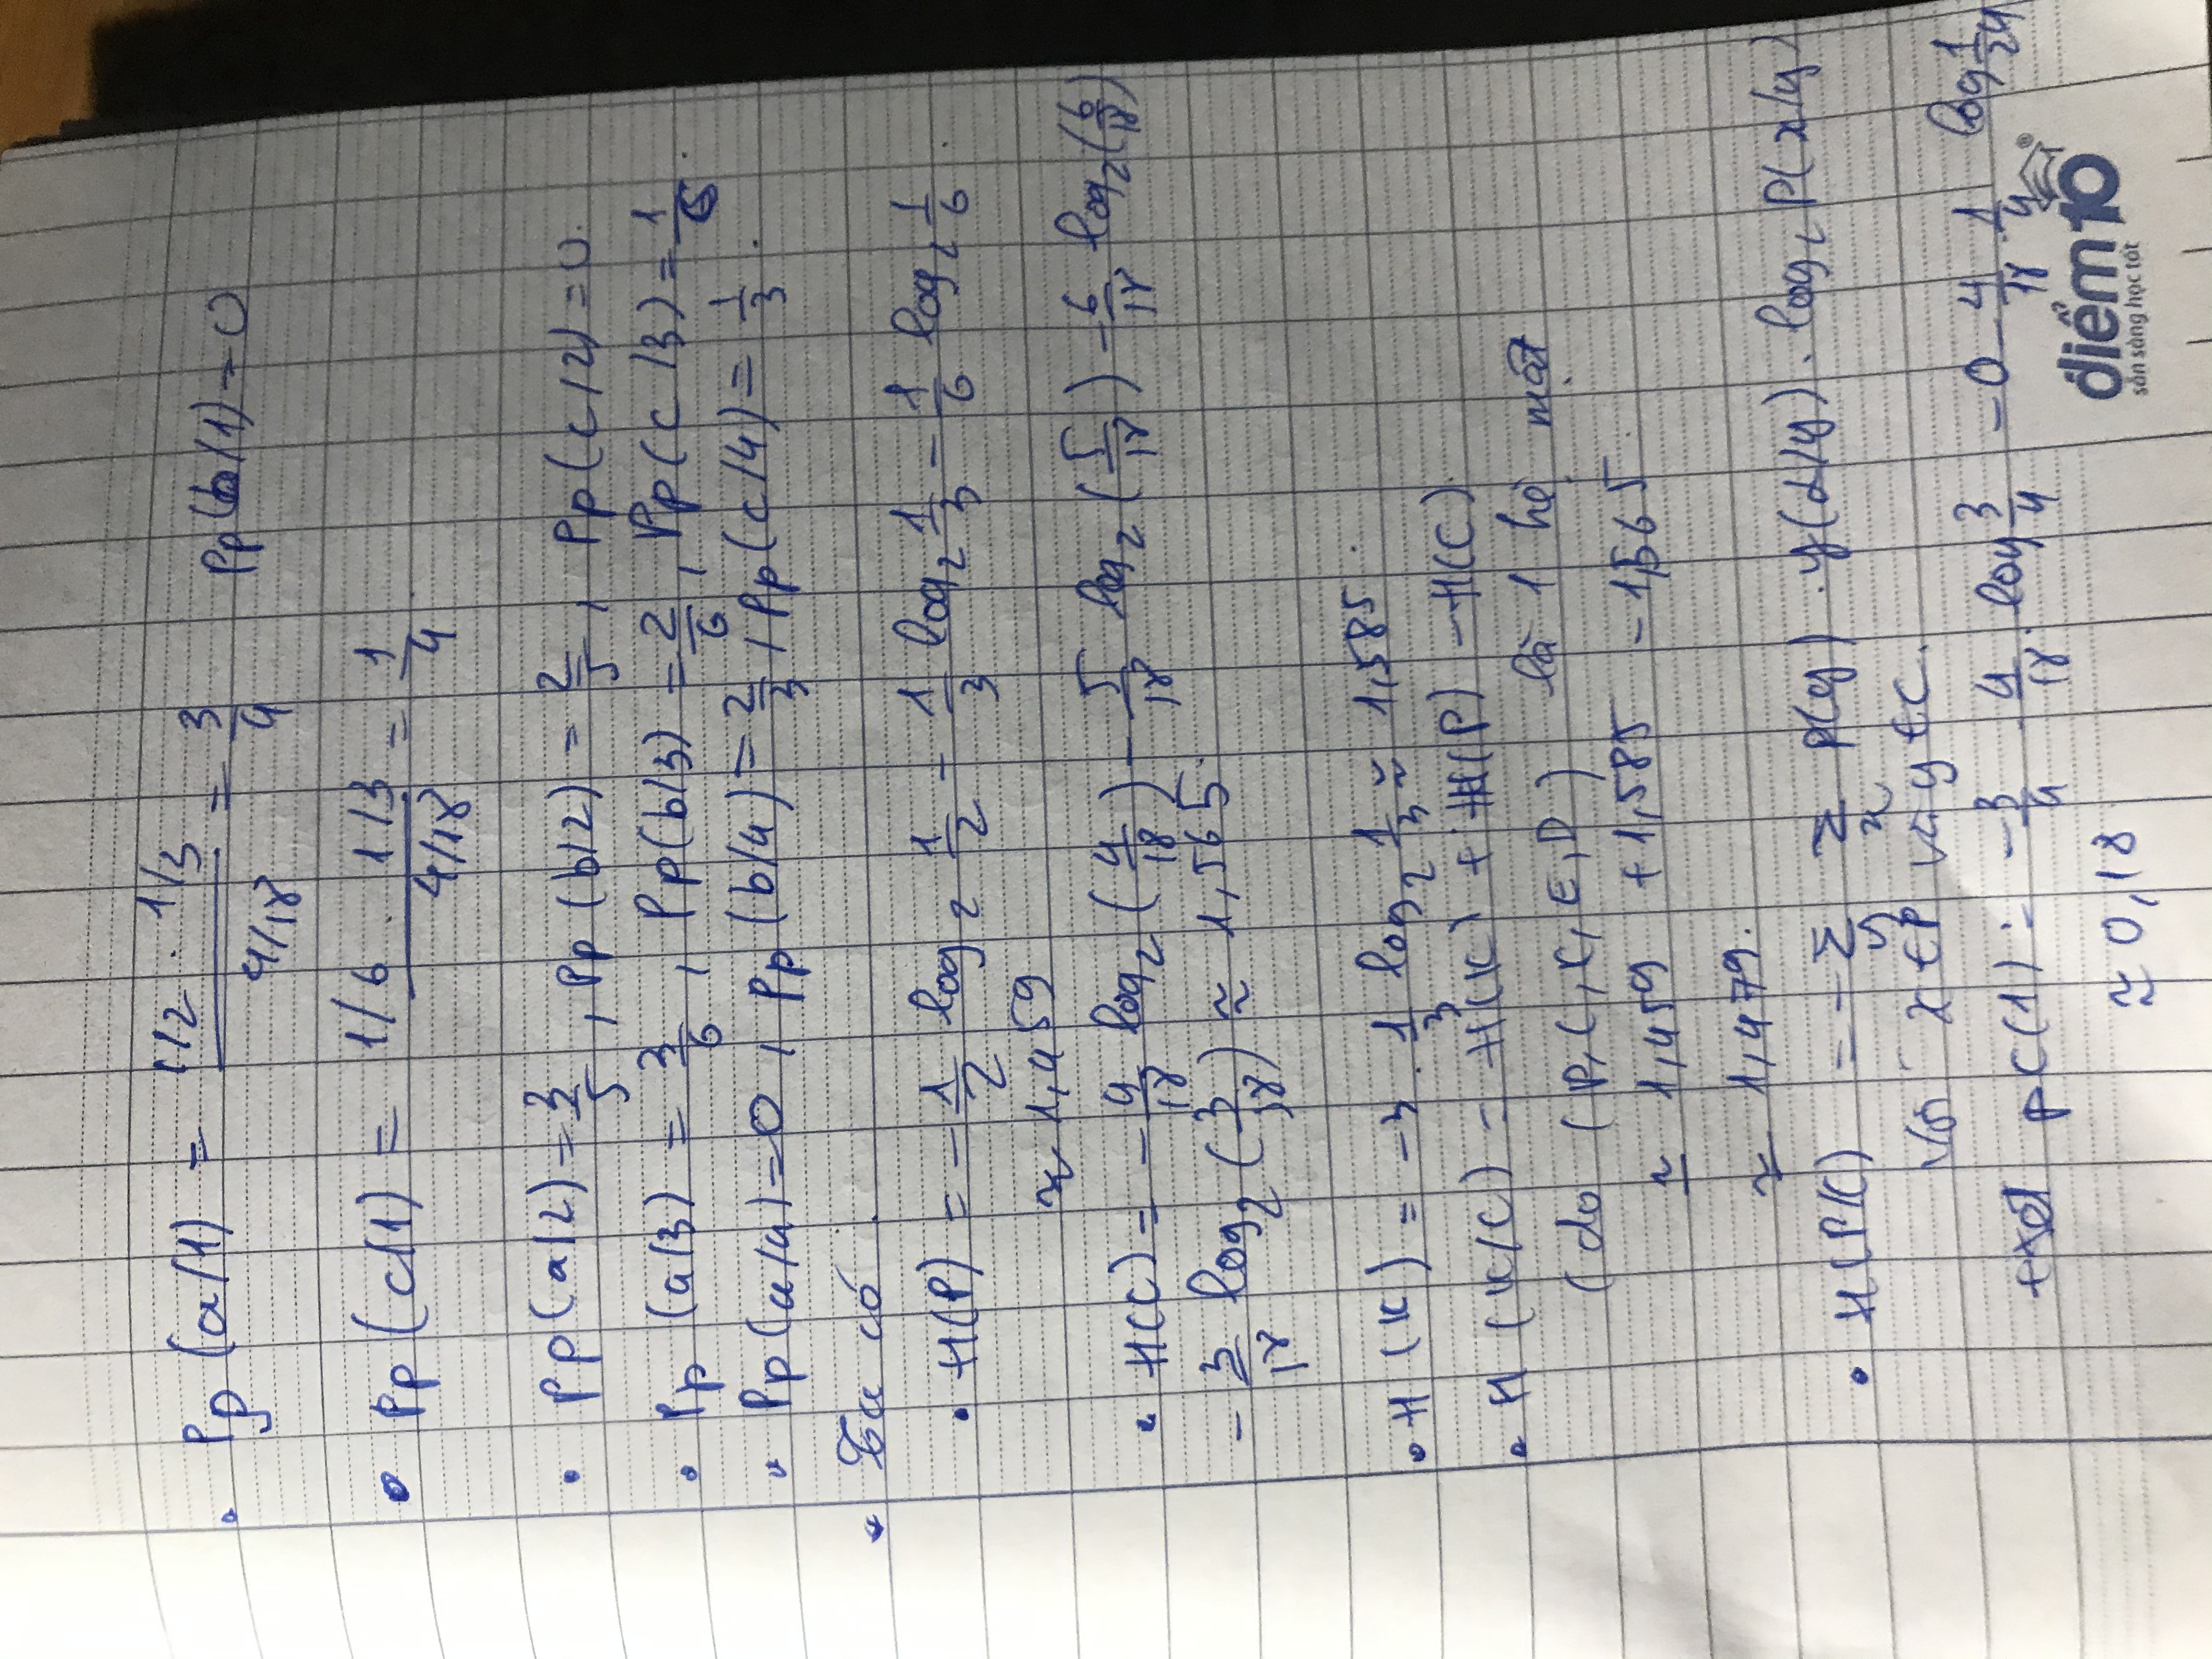 • Pp (a/1) = (1/2 . 1/3)/(4/18) = 3/4 Pp(b/1) = 0
• Pp (c/1) = (1/6 . 1/3)/(4/18) = 1/4.
• Pp(a/2) = 3/5, Pp (b/2) = 2/5, Pp (c/2) = 0.
• Pp (a/3) = 3/6, Pp(b/3) = 2/6, Pp (c/3) = 1/6.
• Pp (a/4) = 0, Pp (b/4) = 2/3, Pp (c/4) = 1/3.
* Ta có :
• H(P) = - 1/2 log₂ 1/2 - 1/3 log₂ 1/3 - 1/6 log₂ 1/6.
≈ 1,459
• H(C) = - 4/18 log₂ (4/18) - 5/18 log₂ (5/18) - 6/18 log₂ (6/18)
- 3/18 log₂ (3/18) ≈ 1,565.
• H (K) = -3 . 1/3 log₂ 1/3 ≈ 1,585.
• H (K/C) = H(K) + H(P) - H(C).
(do (P, C, K, E, D) là 1 hệ mật
≃ 1,459 + 1,585 - 1,565.
≃ 1,479.
• H(P/C) = - Σ_y Σ_x P(y) . y(x/y) . log₂ P(x/y)
Với x ∈ P và y ∈ C.
+ xét pC(1) = - 3/4 . 4/18 . log 3/4 - 0 - 4/18 . 1/4 log 1/24
≈ 0,18
điểm10
sẵn sàng học tốt